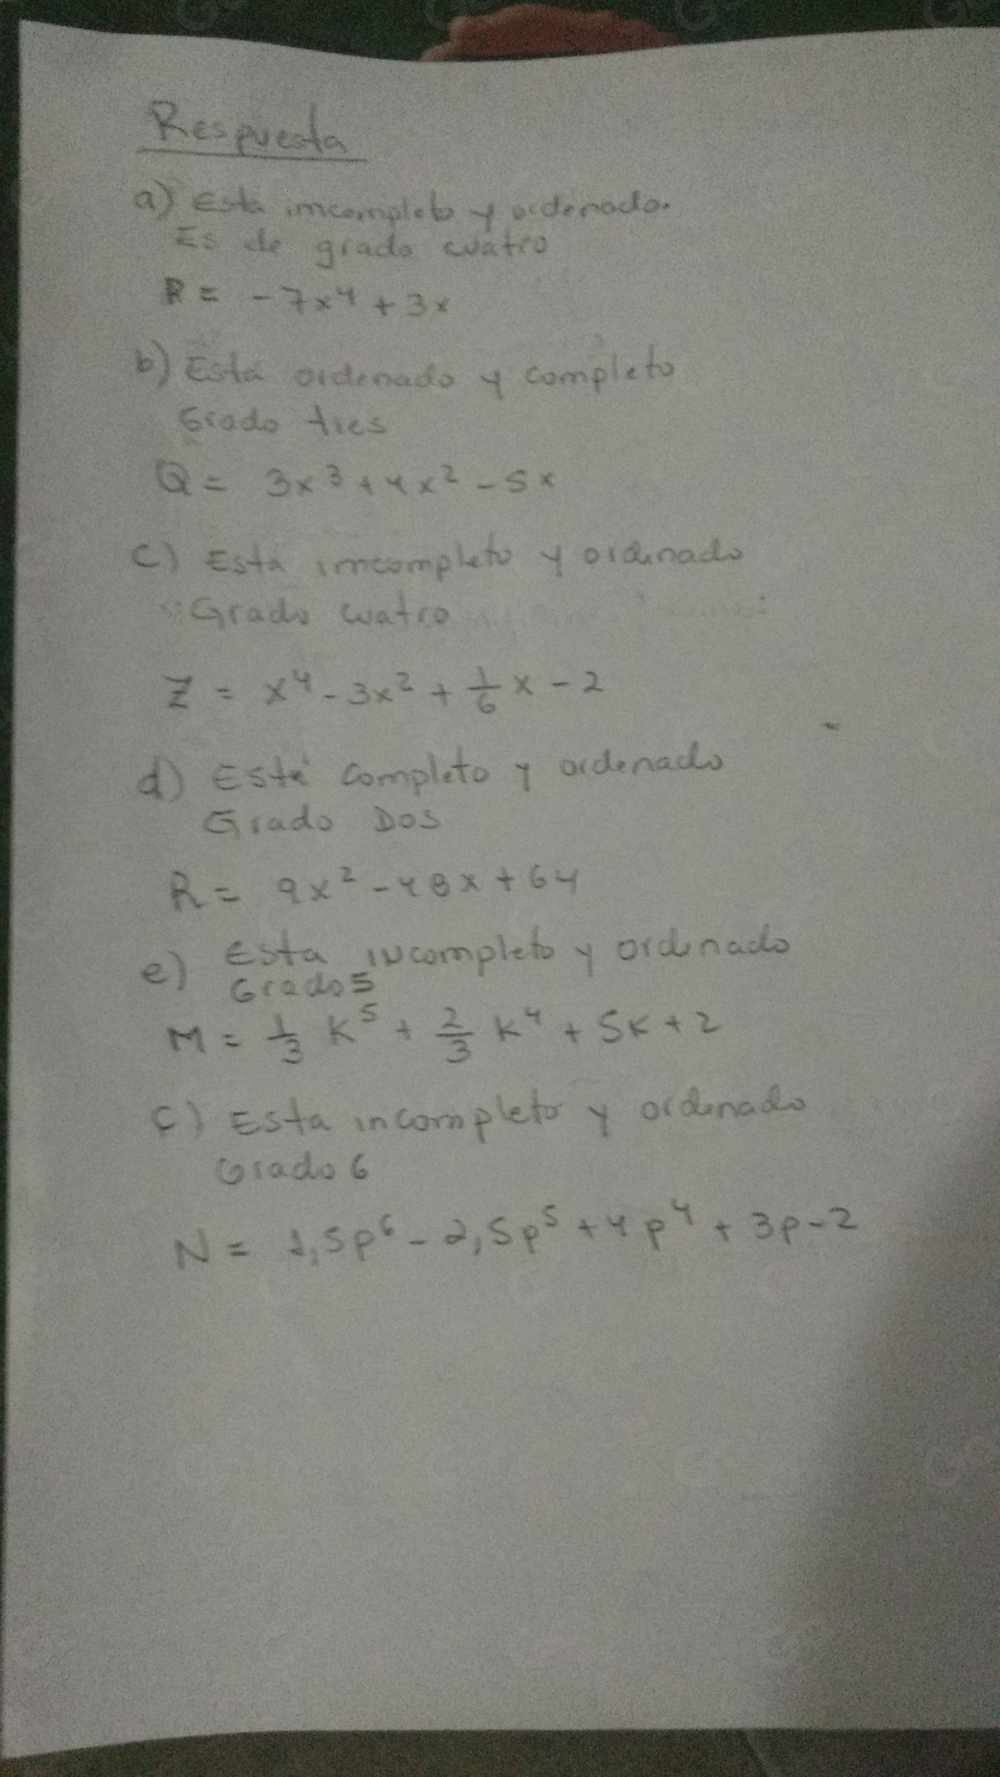 Respuesta
a) Esta imcompleto y ordenado.
Es de grado cuatro
R = - 7x⁴ + 3x
b) Está ordenado y completo
Grado tres
Q = 3x³ + 4x² - 5x
c) Está imcompleto y ordenado
Grado cuatro
Z = x⁴ - 3x² + 1/6 x - 2
d) Esté completo y ordenado
Grado Dos
R = 9x² - 48x + 64
e) Esta incompleto y ordenado
Grado 5
M = 1/3 K⁵ + 2/3 K⁴ + 5K + 2
c) Esta incompleto y ordenado
Grado 6
N = 1,5p⁶ - 2,5p⁵ + 4p⁴ + 3p - 2